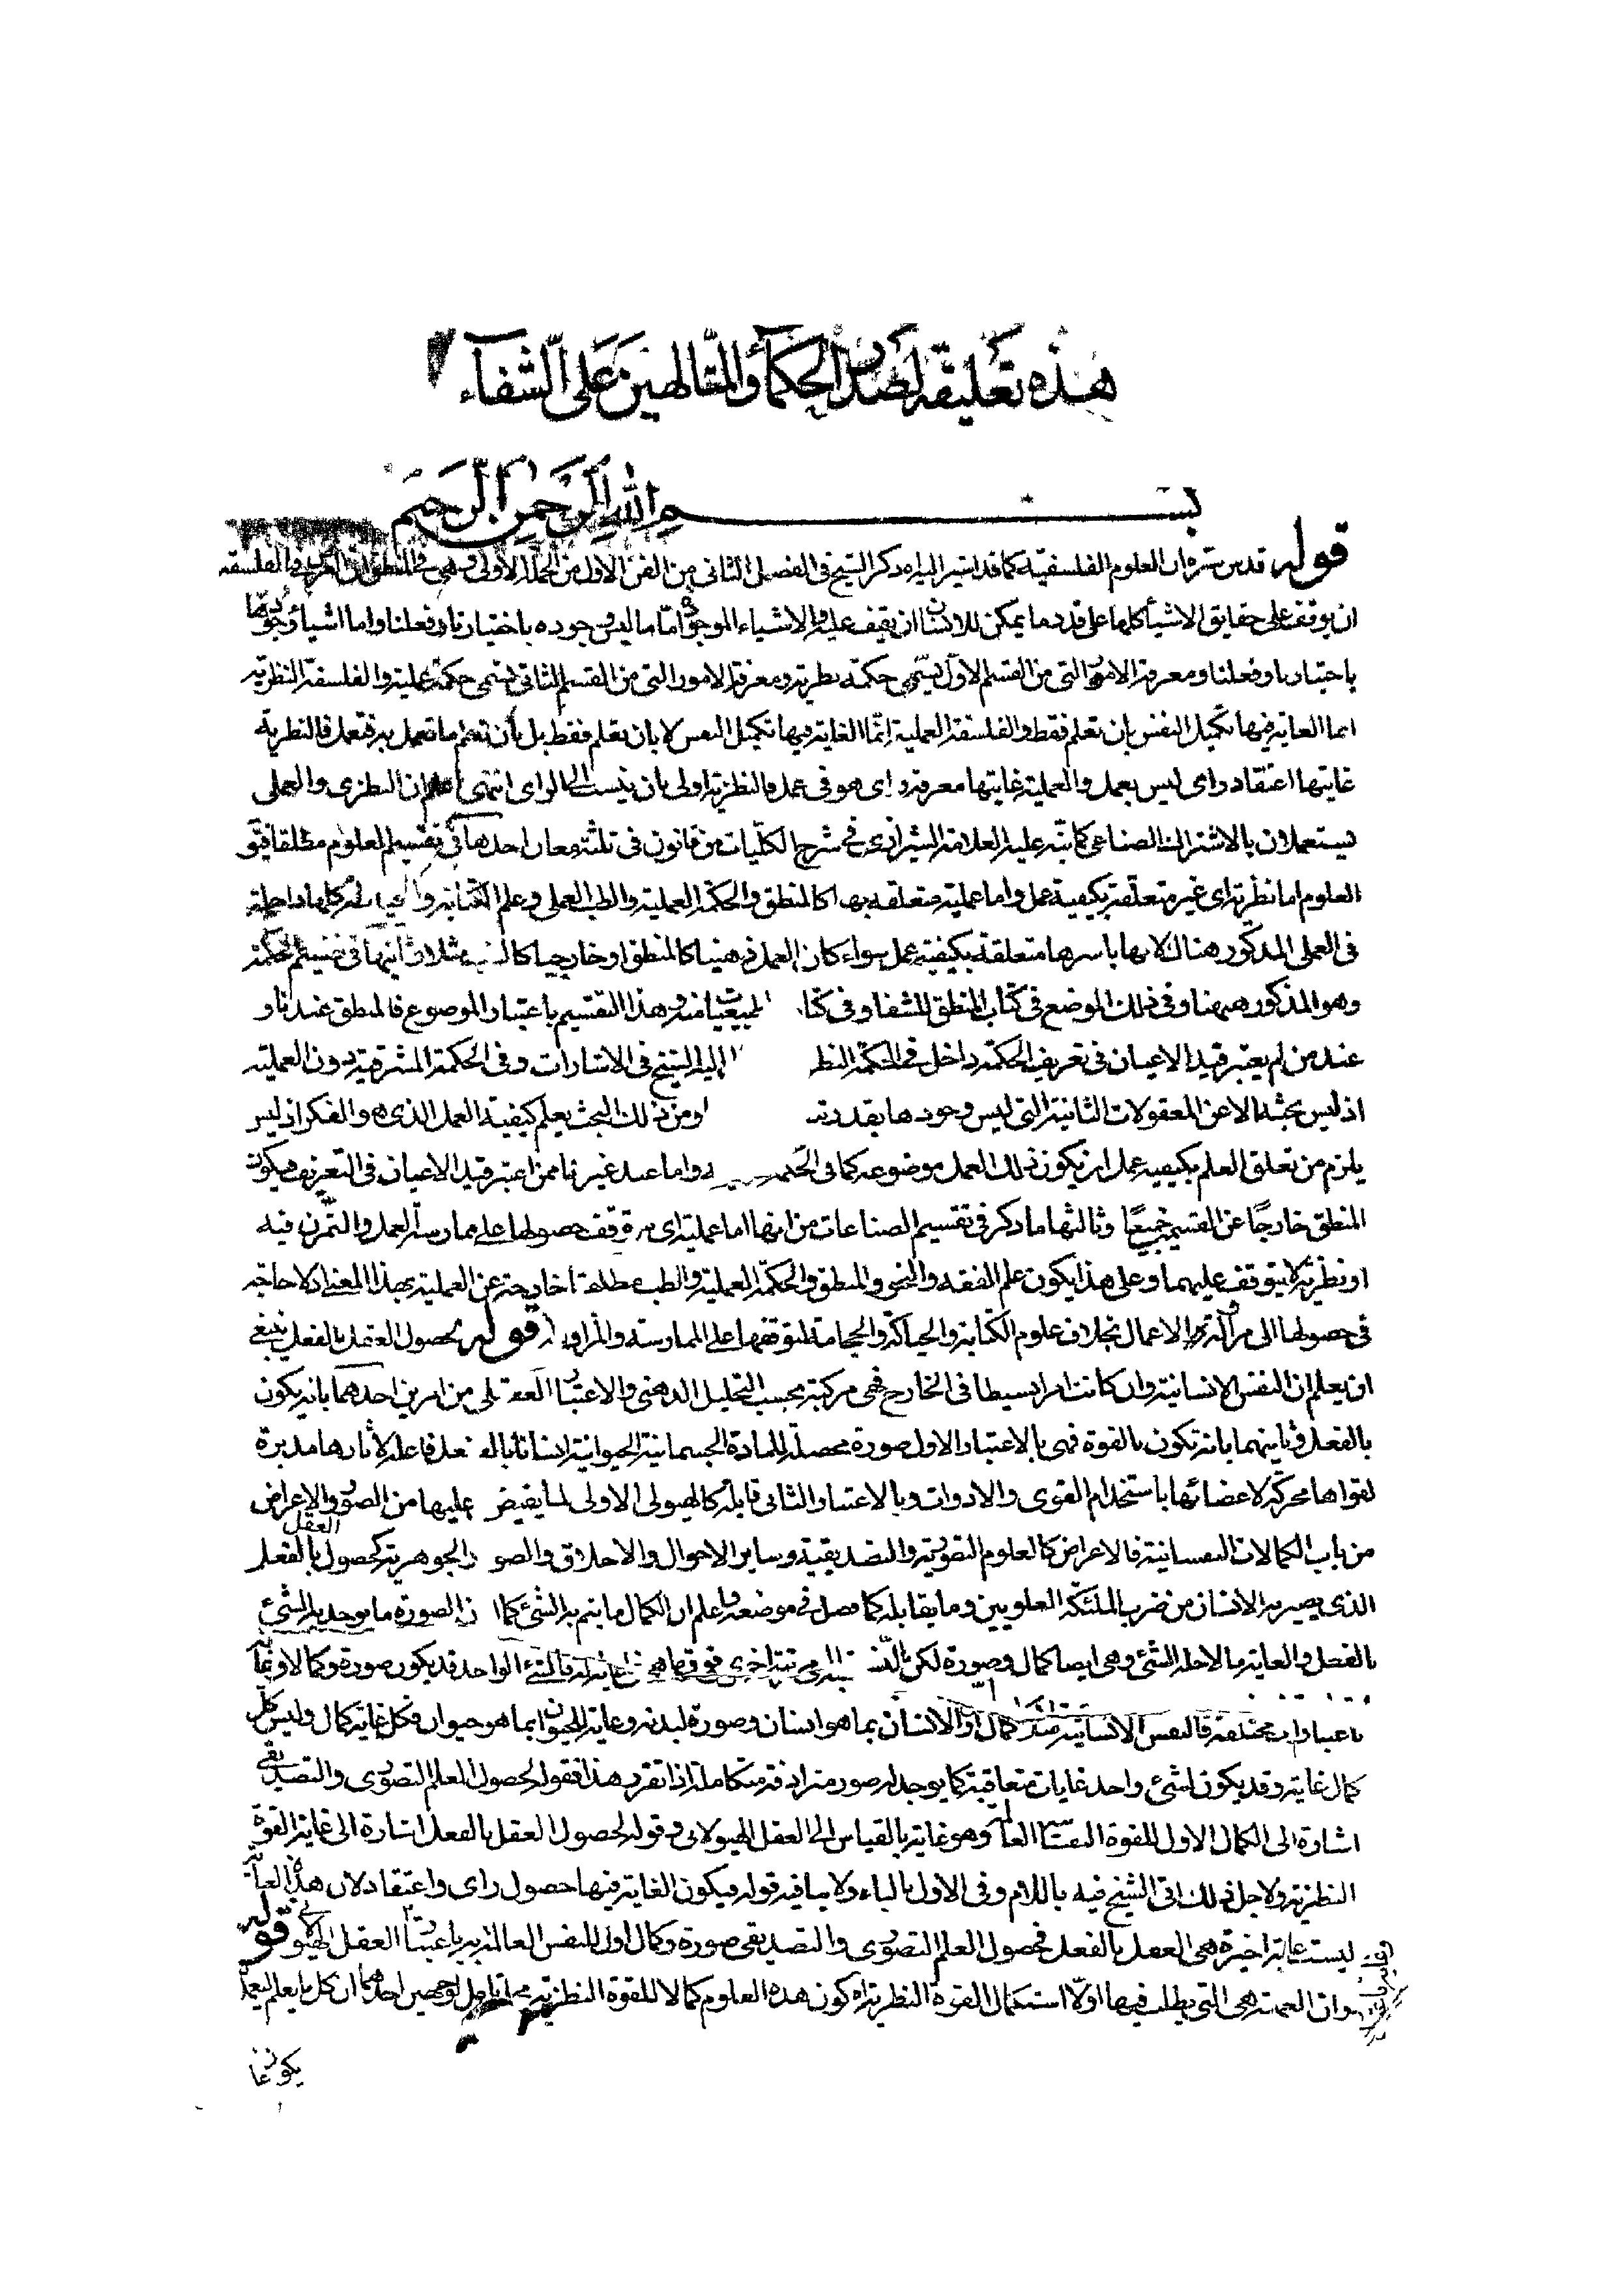 هذه تعليقة لصدر الحكماء والمتالهين على الشفاء
بسم الله الرحمن الرحيم
قوله قدس سره ان العلوم الفلسفية كما قد اشير اليه اه ذكر الشيخ في الفصل الثاني من الفن الاول من الجملة الاولى وهي في المنطق ان الغرض في الفلسفة
ان يوقف على حقايق الاشياء كلها على قدر ما يمكن للانسان ان يقف عليه والاشياء الموجودة اما ما ليس وجوده باختيارنا وفعلنا واما اشياء وجودها
باختيارنا وفعلنا ومعرفة الامور التي من القسم الاول يسمى حكمة نظرية ومعرفة الامور التي من القسم الثاني يسمى حكمة عملية والفلسفة النظرية
انما الغاية فيها تكميل النفس بان تعلم فقط والفلسفة العملية انما الغاية فيها تكميل النفس لا بان تعلم فقط بل بان تعلم ما تعمل به فتعمل فالنظرية
غايتها اعتقاد راى ليس بعمل والعملية غايتها معرفة راى هو في عمل فالنظرية اولى بان ينسب الى الراى انتهى اعلم ان النظرى والعملى
يستعملان بالاشتراك الصناعى كما نبه عليه العلامة الشيرازى في شرح الكليات من قانون في ثلثة معان احدها في تقسيم العلوم مطلقا فيق
العلوم اما نظرية اى غير متعلقة بكيفية عمل واما عملية متعلقه بها كالمنطق والحكمة العملية والطب العملى وعلم الكتابة و كلها داخلة
في العملى المذكور هناك لانها باسرها متعلقة بكيفية عمل سواء كان العمل ذهنيا كالمنطق او خارجيا كا مثلا وثانيها في تقسيم الحكمة
وهو المذكور ههنا وفي ذلك الموضع في كتاب المنطق للشفاء وفي كتا الطبيعيات منه وهذا التقسيم باعتبار الموضوع فالمنطق عندنا و
عند من لم يعتبر قيد الاعيان في تعريف الحكمة داخل في الحكمة النظ اليه الشيخ في الاشارات وفي الحكمة المشرقية دون العملية
اذ ليس بحثه الا عن المعقولات الثانية التي ليس وجودها بقدرتنا ومن ذلك البحث يعلم كيفية العمل الذى هو الفكر اذ ليس
يلزم من تعلق العلم بكيفية عمل ان يكون ذلك العمل موضوعه كما في الحكمة واما عند غيرنا ممن اعتبر قيد الاعيان في التعريف فيكون
المنطق خارجا عن القسيمين جميعا وثالثها ما ذكر في تقسيم الصناعات من انها اما عملية اى يتوقف حصولها على ممارسة العمل والتمرن فيه
او نظرية لا يتوقف عليهما وعلى هذا يكون علم الفقه والنحو والمنطق والحكمة العملية والطب مطلقا خارجة عن العملية بهذا المعنى اذ لا حاجة
في حصولها الى مزاولة الاعمال بخلاف علوم الكتابة والحياكة والحجامة لتوقفها على الممارسة والمزاولة قوله بحصول العقل بالفعل ينبغى
ان يعلم ان النفس الانسانية وان كانت امرا بسيطا في الخارج فهى مركبة بحسب التحليل الذهنى والاعتبار العقلى من امرين احدهما بانه يكون
بالفعل وثانيهما بانه تكون بالقوة فهى بالاعتبار الاول صورة محصلة للمادة الجسمانية الحيوانية انسانا بالفعل فاعلة لآثارها مدبرة
لقواها محركة لاعضائها باستخدام القوى والادوات وبالاعتبار الثانى قابلة كالهيولى الاولى لما يفيض عليها من الصور والاعراض
من باب الكمالات النفسانية فالاعراض كالعلوم التصورية والتصديقية وساير الاحوال والاخلاق والصور الجوهرية كحصول العقل بالفعل
الذى يصير به الانسان من ضرب الملئكة العلويين وما يقابله كما فصل في موضعه واعلم ان الكمال ما يتم به الشئ كما ان الصورة ما يوجد به الشئ
بالفعل والغاية ما لاجله الشئ وهى ايضا كمال وصورة لكن بالنسبة الى مرتبة اخرى فوقها هى غاية له فالشئ الواحد قد يكون صورة وكمالا وغاية
باعتبارات مختلفة فالنفس الانسانية كمال اول للانسان بما هو انسان وصورة لبدنه وغاية للحيوان بما هو حيوان فكل غاية كمال وليس كل
كمال غاية وقد يكون لشئ واحد غايات متعاقبة كما يوجد له صور مترادفة متكاملة اذا تقرر هذا فقوله لحصول العلم التصورى والتصديقى
اشارة الى الكمال الاول للقوة النفسانية العالمة وهو غاية بالقياس الى العقل الهيولانى وقوله لحصول العقل بالفعل اشارة الى غاية القوة
النظرية ولاجل ذلك اتى الشيخ فيه باللام وفى الاول بالباء ولا ينافيه قوله فيكون الغاية فيها حصول راى واعتقاد لان هذه الغاية
ليست غاية اخيرة هى العقل بالفعل فحصول العلم التصورى والتصديقى صورة وكمال اول للنفس العالمة به باعتبار العقل الهيولانى قوله
وان العملية هى التى يطلب فيها اولا استكمال القوة النظرية اه كون هذه العلوم كمالا للقوة النظرية لوجهين احدهما ان كل ما يعلم ليعمل
يكون غا